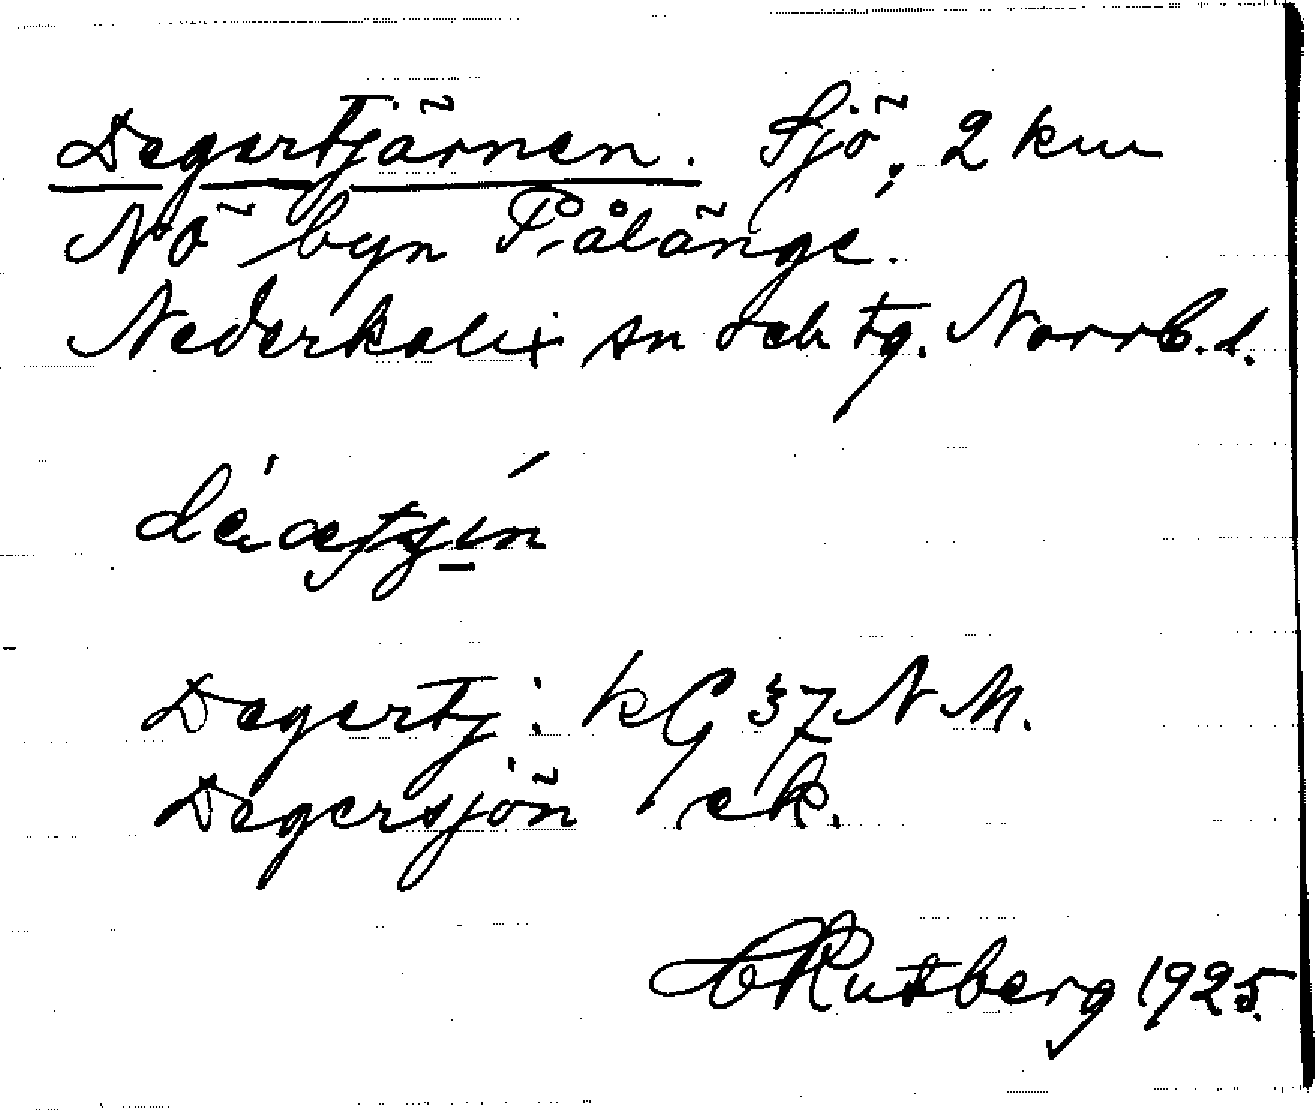 Degertjärnen. Sjö, 2 km
NÖ byn Pålänge.
Nederkalix sn och tg. Norrb. l.
Degertj: kG 37 N M.
Degersjön ek.
Rutberg 1925.